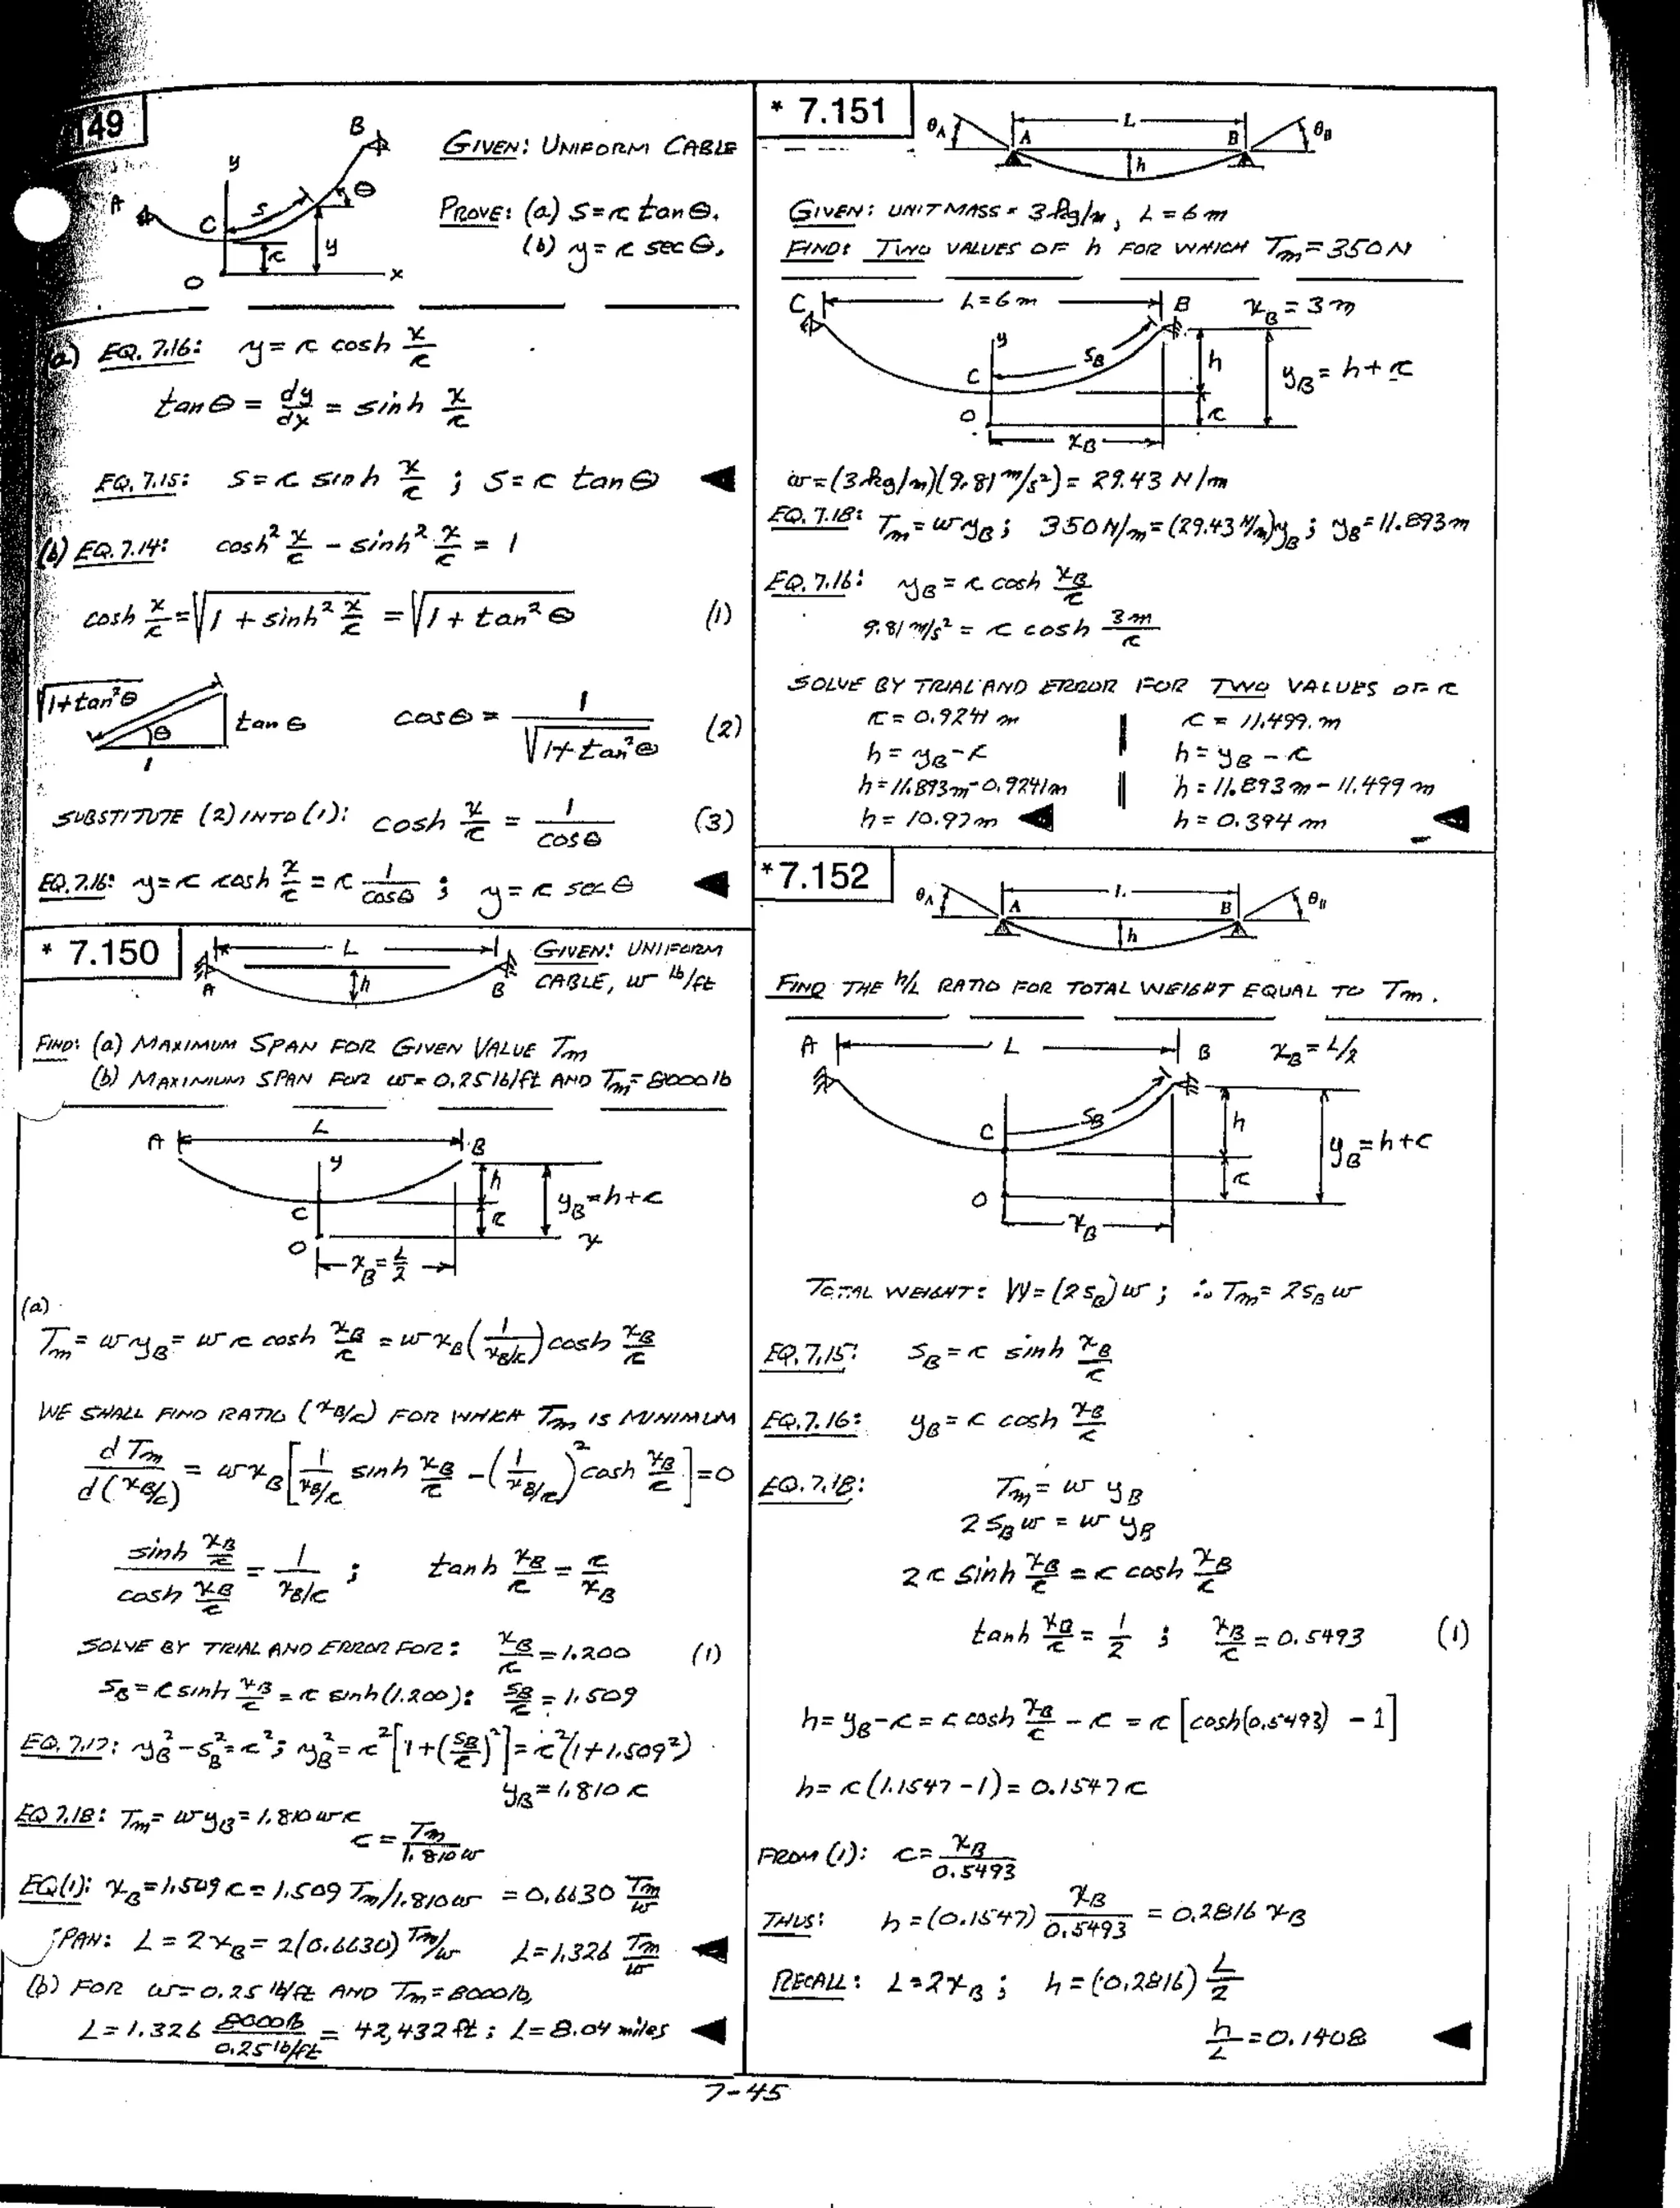 149
B
y
A
C
s
θ
c
y
O
x
GIVEN: UNIFORM CABLE
PROVE: (a) S = c tan θ.
(b) y = c sec θ.
(a) EQ. 7.16: y = c cosh x/c
tan θ = dy/dx = sinh x/c
EQ. 7.15: S = c sinh x/c ; S = c tan θ
(b) EQ. 7.14: cosh² x/c - sinh² x/c = 1
cosh x/c = √(1 + sinh² x/c) = √(1 + tan² θ) (1)
√(1+tan²θ) tan θ θ 1
cos θ = 1/√(1+tan²θ) (2)
SUBSTITUTE (2) INTO (1): cosh x/c = 1/cos θ (3)
EQ. 7.16: y = c cosh x/c = c 1/cos θ ; y = c sec θ
* 7.150
L
h
A
B
GIVEN: UNIFORM
CABLE, w lb/ft
FIND: (a) MAXIMUM SPAN FOR GIVEN VALUE Tm
(b) MAXIMUM SPAN FOR w = 0.25 lb/ft AND Tm = 8000 lb
A L B
y
h
C
c
yB = h+c
O
x
xB = L/2
(a)
Tm = w yB = w c cosh xB/c = w xB (1/(xB/c)) cosh xB/c
WE SHALL FIND RATIO (xB/c) FOR WHICH Tm IS MINIMUM
dTm/d(xB/c) = w xB [1/(xB/c) sinh xB/c - (1/(xB/c))² cosh xB/c] = 0
sinh xB/c / cosh xB/c = 1/(xB/c) ; tanh xB/c = c/xB
SOLVE BY TRIAL AND ERROR FOR: xB/c = 1.200 (1)
sB = c sinh xB/c = c sinh (1.200): sB/c = 1.509
EQ. 7.17: yB² - sB² = c²; yB² = c²[1+(sB/c)²] = c²(1+1.509²)
yB = 1.810 c
EQ 7.18: Tm = w yB = 1.810 w c
c = Tm/1.810w
EQ(1): xB = 1.509 c = 1.509 Tm/1.810w = 0.6630 Tm/w
SPAN: L = 2xB = 2(0.6630) Tm/w L = 1.326 Tm/w
(b) FOR w = 0.25 lb/ft AND Tm = 8000 lb,
L = 1.326 8000 lb/0.25 lb/ft = 42,432 ft ; L = 8.04 miles
* 7.151
θA
A
L
B
θB
h
GIVEN: UNIT MASS = 3 kg/m, L = 6 m
FIND: TWO VALUES OF h FOR WHICH Tm = 350 N
C L = 6 m B xB = 3 m
y
sB
h
yB = h + c
C
O
c
xB
w = (3 kg/m)(9.81 m/s²) = 29.43 N/m
EQ. 7.18: Tm = w yB ; 350 N/m = (29.43 N/m)yB ; yB = 11.893 m
EQ. 7.16: yB = c cosh xB/c
9.81 m/s² = c cosh 3m/c
SOLVE BY TRIAL AND ERROR FOR TWO VALUES OF c
c = 0.9241 m c = 11.499. m
h = yB - c h = yB - c
h = 11.893 m - 0.9241 m h = 11.893 m - 11.499 m
h = 10.97 m h = 0.394 m
*7.152
θA
A
L
B
θB
h
FIND THE h/L RATIO FOR TOTAL WEIGHT EQUAL TO Tm.
A L B xB = L/2
C
sB
h
yB = h+c
c
O
xB
TOTAL WEIGHT: W = (2sB)w ; ∴ Tm = 2sB w
EQ. 7.15: sB = c sinh xB/c
EQ. 7.16: yB = c cosh xB/c
EQ. 7.18: Tm = w yB
2 sB w = w yB
2 c sinh xB/c = c cosh xB/c
tanh xB/c = 1/2 ; xB/c = 0.5493 (1)
h = yB - c = c cosh xB/c - c = c [cosh(0.5493) - 1]
h = c (1.1547 - 1) = 0.1547 c
FROM (1): c = xB/0.5493
THUS: h = (0.1547) xB/0.5493 = 0.2816 xB
RECALL: L = 2xB ; h = (0.2816) L/2
h/L = 0.1408
7-45